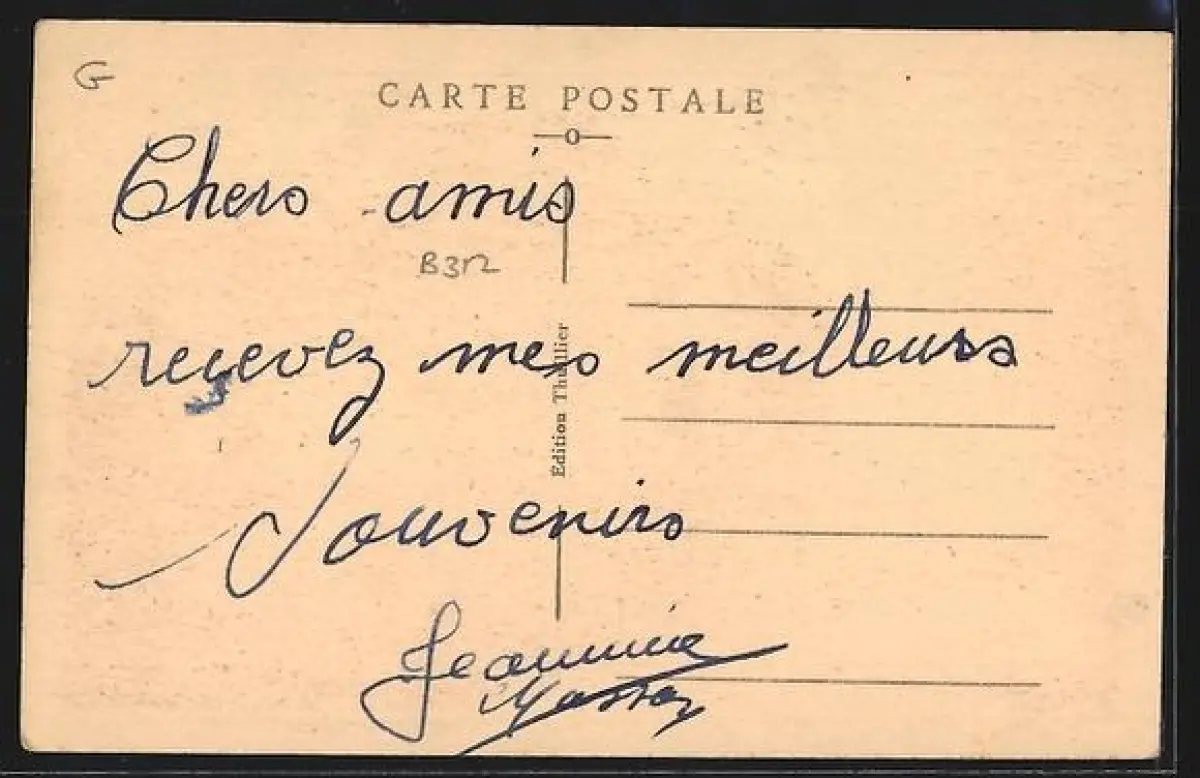 G
CARTE POSTALE
Chers amis
B312
recevez mes meilleurs
Edition Thuillier
Souvenirs
Jeannine